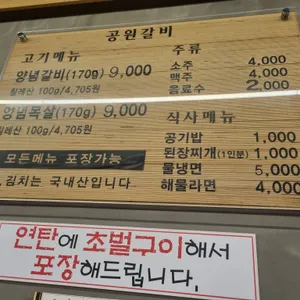 공원갈비
고기메뉴
양념갈비(170g) 9,000
칠레산 100g/4,705원
양념목살(170g) 9,000
칠레산 100g/4,705원
모든메뉴 포장가능
김치는 국내산입니다
주류
소주 4,000
맥주 4,000
음료수 2,000
식사메뉴
공기밥 1,000
된장찌개(1인분) 1,000
물냉면 5,000
해물라면 4,000
연탄에 초벌구이해서
포장해드립니다.